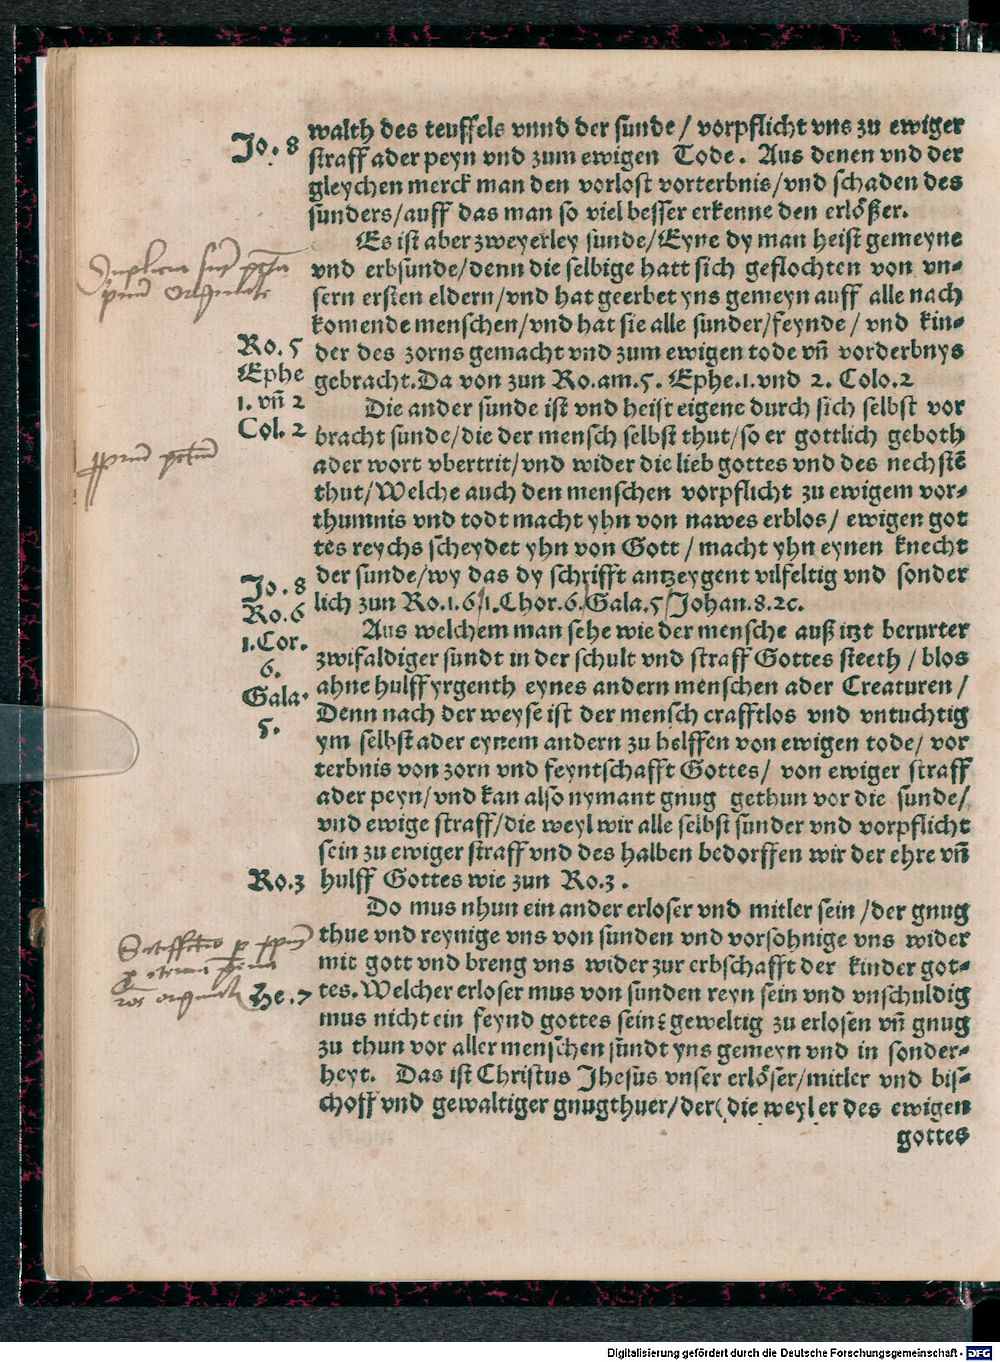 walth des teuffels vnnd der sunde / vorpflicht vns zu ewiger
Jo. 8
straff ader peyn vnd zum ewigen Tode. Aus denen vnd der
gleychen merck man den vorlost vorterbnis/vnd schaden des
sunders/auff das man so viel besser erkenne den erlößer.
Es ist aber zweyerley sunde/Eyne dy man heist gemeyne
vnd erbsunde/denn die selbige hatt sich geflochten von vn⸗
sern ersten eldern/vnd hat geerbet yns gemeyn auff alle nach
komende menschen/vnd hat sie alle sunder/feynde / vnd kin⸗
Ro. 5
der des zorns gemacht vnd zum ewigen tode vñ vorderbnys
Ephe
gebracht. Da von zun Ro.am.5. Ephe.1.vnd 2. Colo.2
1. vñ 2
Die ander sunde ist vnd heist eigene durch sich selbst vor
Col. 2
bracht sunde/die der mensch selbst thut/so er gottlich geboth
ader wort vbertrit/vnd wider die lieb gottes vnd des nechstē
thut/Welche auch den menschen vorpflicht zu ewigem vor⸗
thumnis vnd todt macht yhn von nawes erblos/ ewigen got
tes reychs scheydet yhn von Gott / macht yhn eynen knecht
der sunde/wy das dy schrifft antzeygent vilfeltig vnd sonder
Jo. 8
lich zun Ro.1.6/1.Chor.6.Gala.5/Johan.8.2c.
Ro. 6
Aus welchem man sehe wie der mensche auß itzt berurter
1.Cor.
zwifaldiger sundt in der schult vnd straff Gottes steeth / blos
6.
ahne hulff yrgenth eynes andern menschen ader Creaturen /
Gala.
Denn nach der weyse ist der mensch crafftlos vnd vntuchtig
5.
ym selbst ader eynem andern zu helffen von ewigen tode/ vor
terbnis von zorn vnd feyntschafft Gottes/ von ewiger straff
ader peyn/vnd kan also nymant gnug gethun vor die sunde/
vnd ewige straff/die weyl wir alle selbst sunder vnd vorpflicht
sein zu ewiger straff vnd des halben bedorffen wir der ehre vñ
Ro.3
hulff Gottes wie zun Ro.3.
Do mus nhun ein ander erloser vnd mitler sein /der gnug
thue vnd reynige vns von sunden vnd vorsohnige vns wider
mit gott vnd breng vns wider zur erbschafft der kinder got⸗
He. 7
tes. Welcher erloser mus von sunden reyn sein vnd vnschuldig
mus nicht ein feynd gottes sein: geweltig zu erlosen vñ gnug
zu thun vor aller menschen sundt yns gemeyn vnd in sonder⸗
heyt. Das ist Christus Jhesus vnser erlöser/mitler vnd bis⸗
choff vnd gewaltiger gnugthuer/der (die weyl er des ewigen
gottes
Digitalisierung gefördert durch die Deutsche Forschungsgemeinschaft - DFG